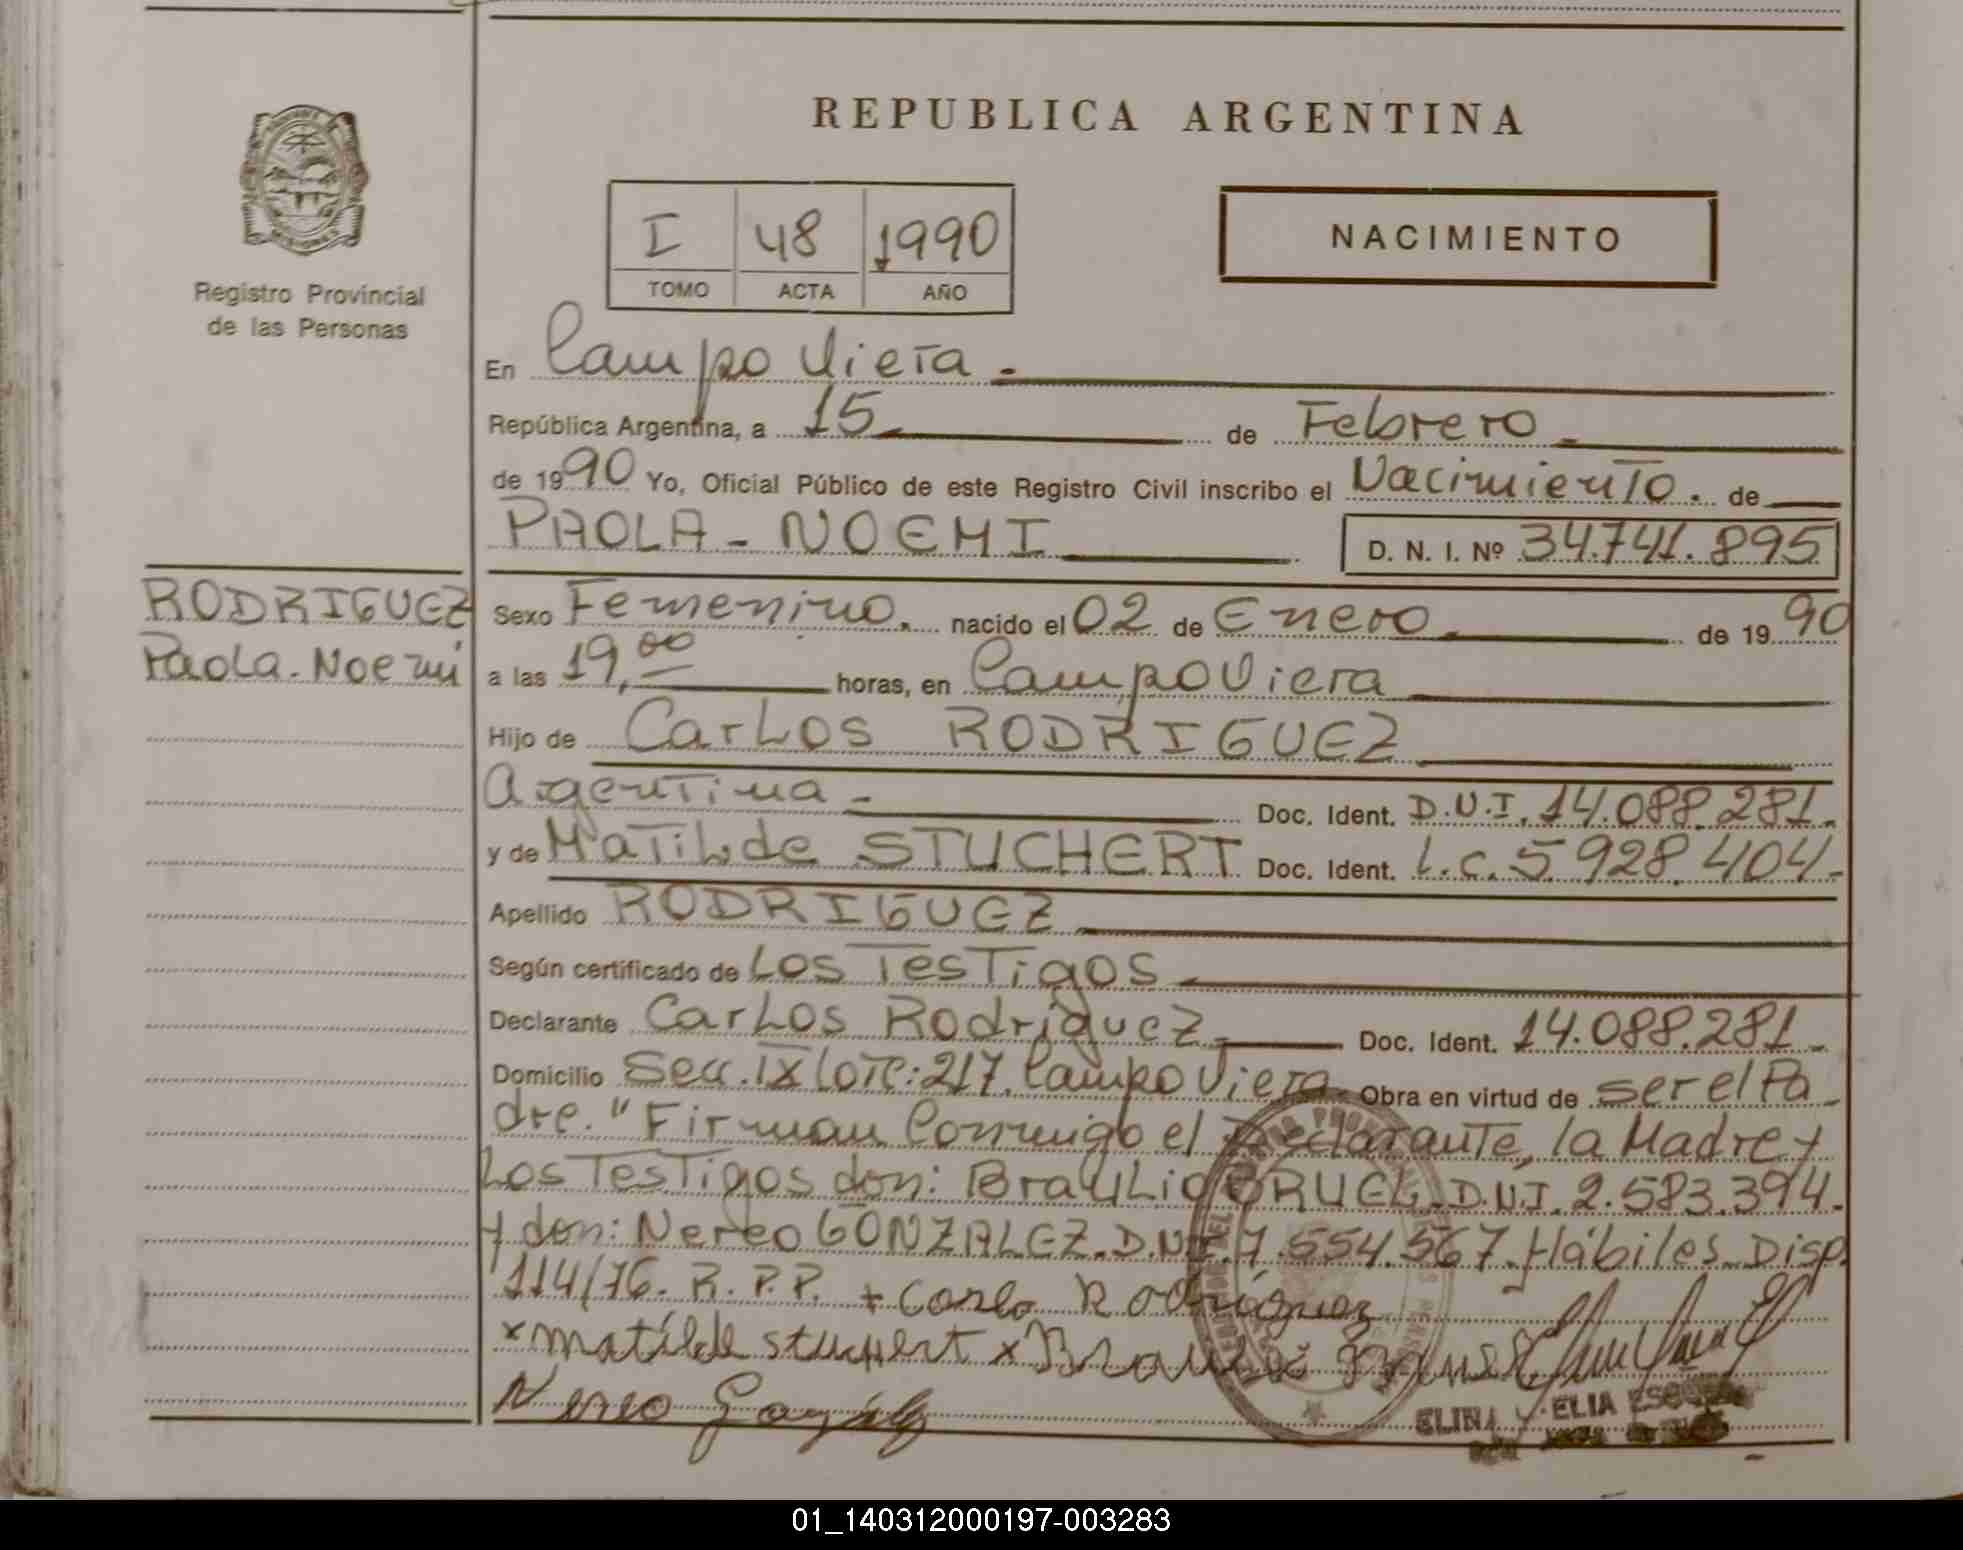 REPUBLICA ARGENTINA
I 48 1990
TOMO ACTA AÑO
NACIMIENTO
MISIONES
Registro Provincial
de las Personas
En Campo Viera.
República Argentina, a 15 de Febrero
de 1990 Yo, Oficial Público de este Registro Civil inscribo el Nacimiento. de
PAOLA - NOEMI D. N. I. Nº 34.741.895
RODRIGUEZ
Paola - Noemi
Sexo Femenino. nacido el 02 de Enero de 1990
a las 19,00 horas, en Campo Viera
Hijo de Carlos RODRIGUEZ
Argentina - Doc. Ident. D.N.I. 14.088.281.
y de Matilde STUCHERT Doc. Ident. L.C. 5.928.404-
Apellido RODRIGUEZ
Según certificado de Los Testigos
Declarante Carlos Rodriguez Doc. Ident. 14.088.281
Domicilio Secc. IX Lote: 217. Campo Viera Obra en virtud de ser el Pa
dre. "Firman Conmigo el Declarante, la Madre y
Los Testigos don: Braulio BRUEL. D.N.I. 2.583.394.
y don: Nereo GONZALEZ. D.N.I. 7.554.567. Hábiles Disp.
114/76. R.P.P. + Carlo Rodriguez
x matilde stuchert x Braulio
Nereo Gonzalez
ELIA
01_140312000197-003283